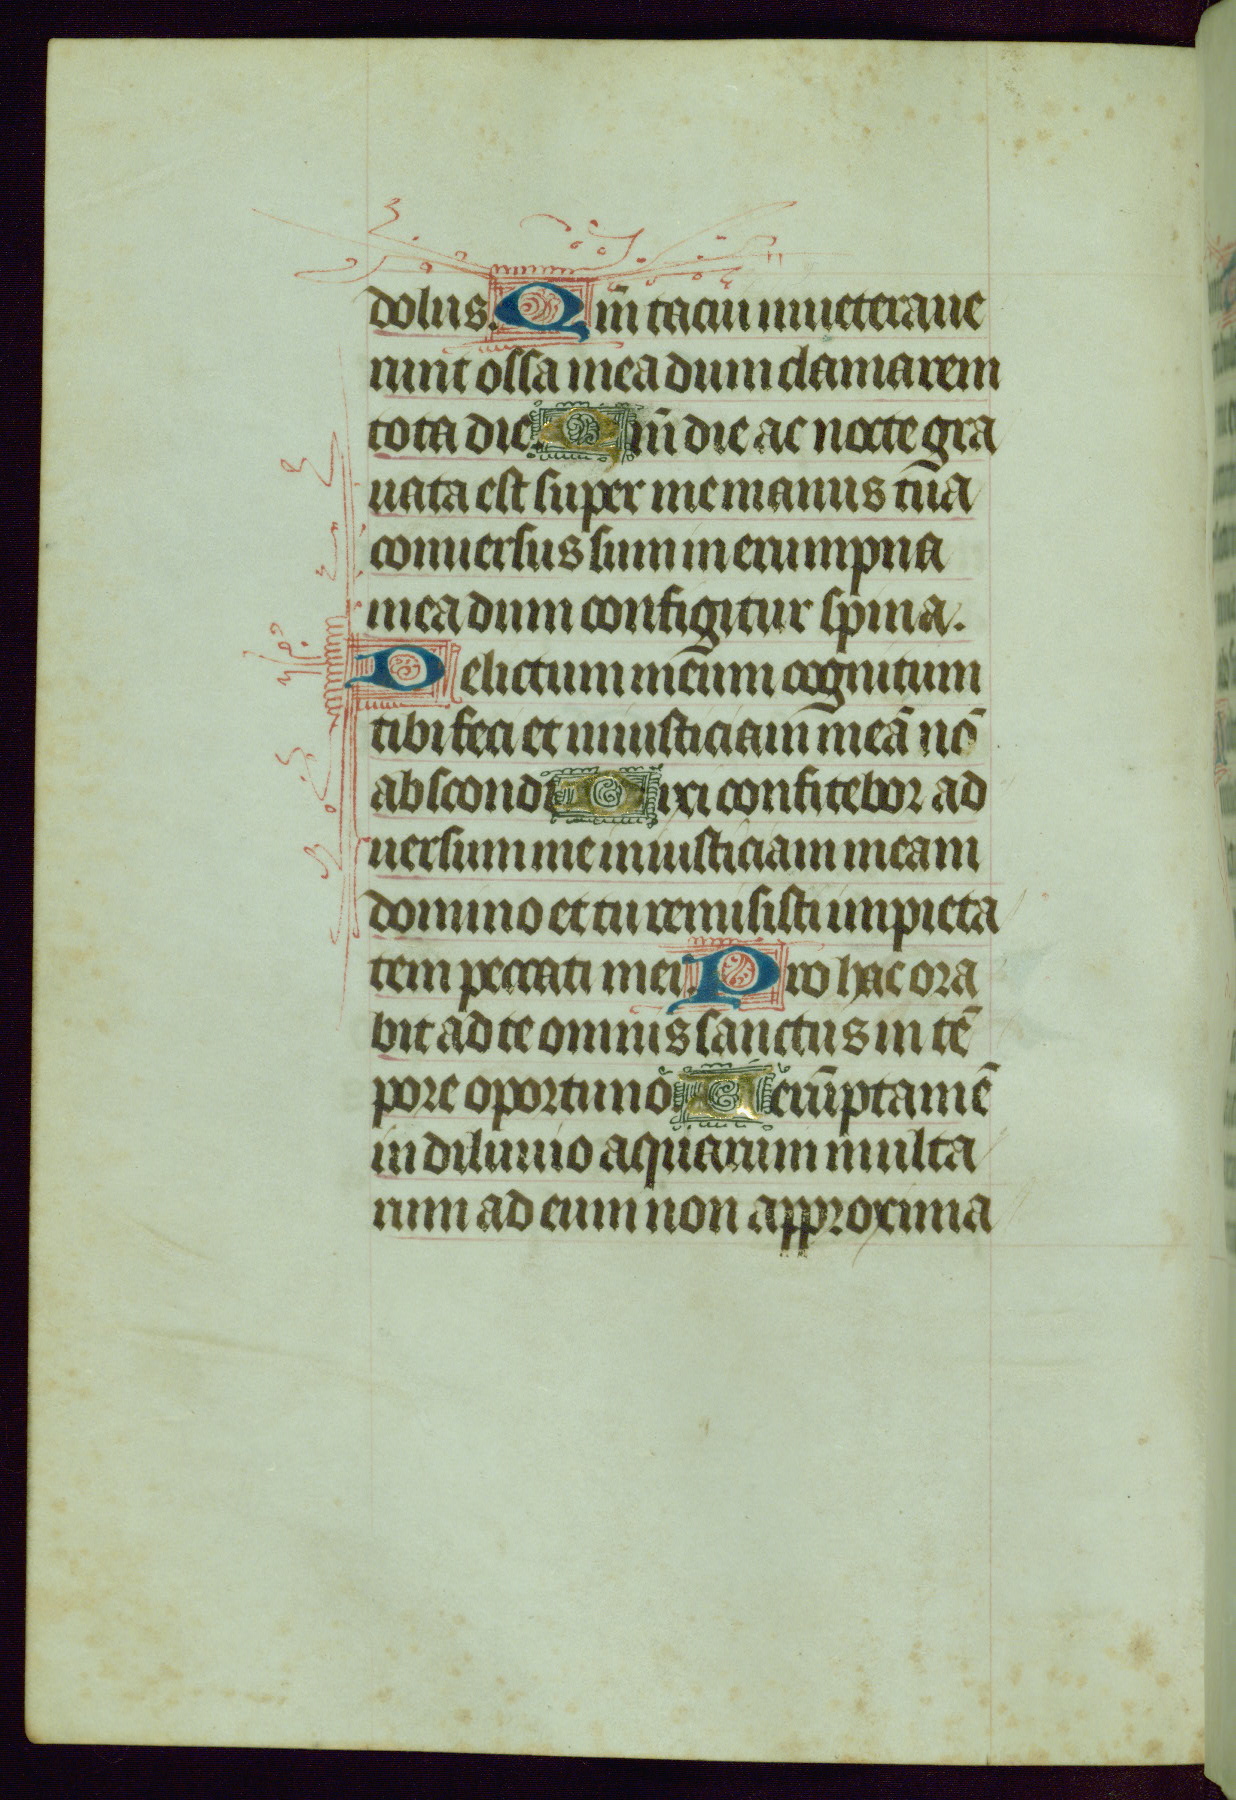 dolus. Qm̄ tacui inueteraue
runt ossa mea dum clamarem
tota die. Qm̄ die ac nocte gra
uata est super me manus tua
conuersus sum in erumpna
mea dum configitur spina.
Delictum meum cognitum
tibi feci et iniusticiam meā nō
abscondi Dixi confitebor ad
uersum me iniusticiam meam
domino et tu remisisti impieta
tem peccati mei. Pro hac ora
bit ad te omnis sanctus in tē
pore oportuno Uerūptamē
in diluuio aquarum multa
rum ad eum non approxima